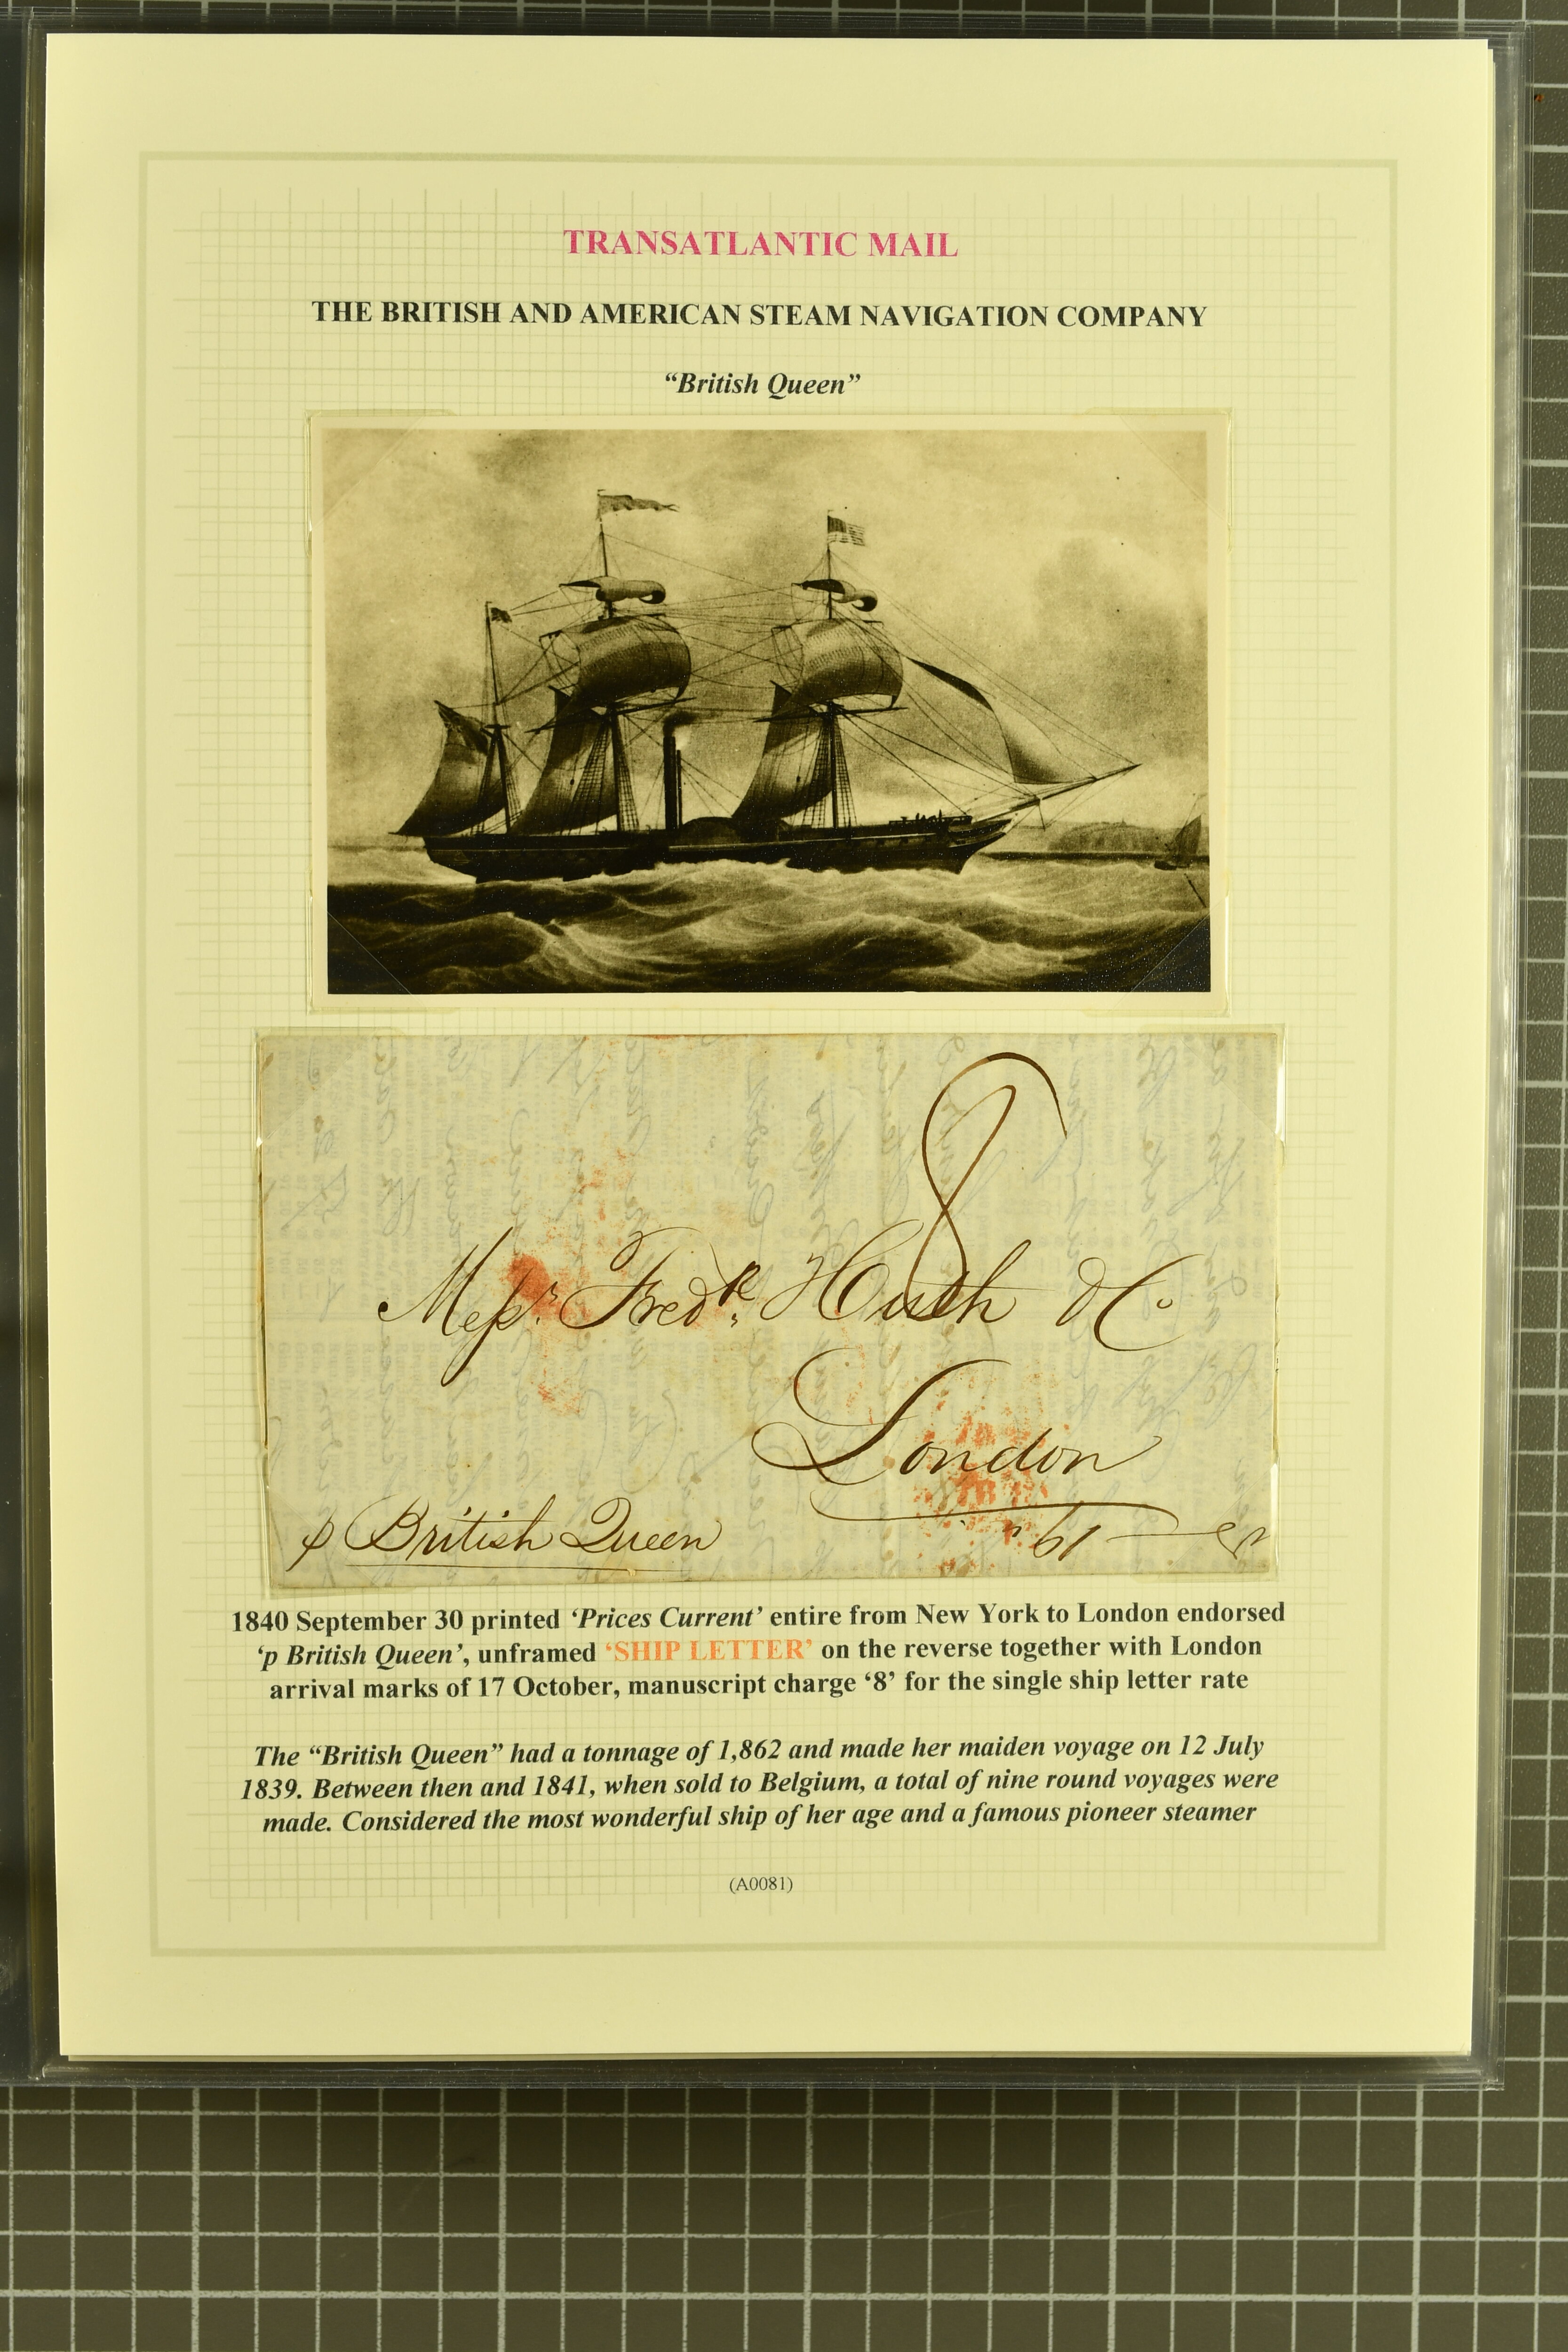 TRANSATLANTIC MAIL
THE BRITISH AND AMERICAN STEAM NAVIGATION COMPANY
“British Queen”
8
Messrs. Fredk. Huth & Co
London
p British Queen
1840 September 30 printed ‘Prices Current’ entire from New York to London endorsed
‘p British Queen’, unframed ‘SHIP LETTER’ on the reverse together with London
arrival marks of 17 October, manuscript charge ‘8’ for the single ship letter rate
The “British Queen” had a tonnage of 1,862 and made her maiden voyage on 12 July
1839. Between then and 1841, when sold to Belgium, a total of nine round voyages were
made. Considered the most wonderful ship of her age and a famous pioneer steamer
(A0081)